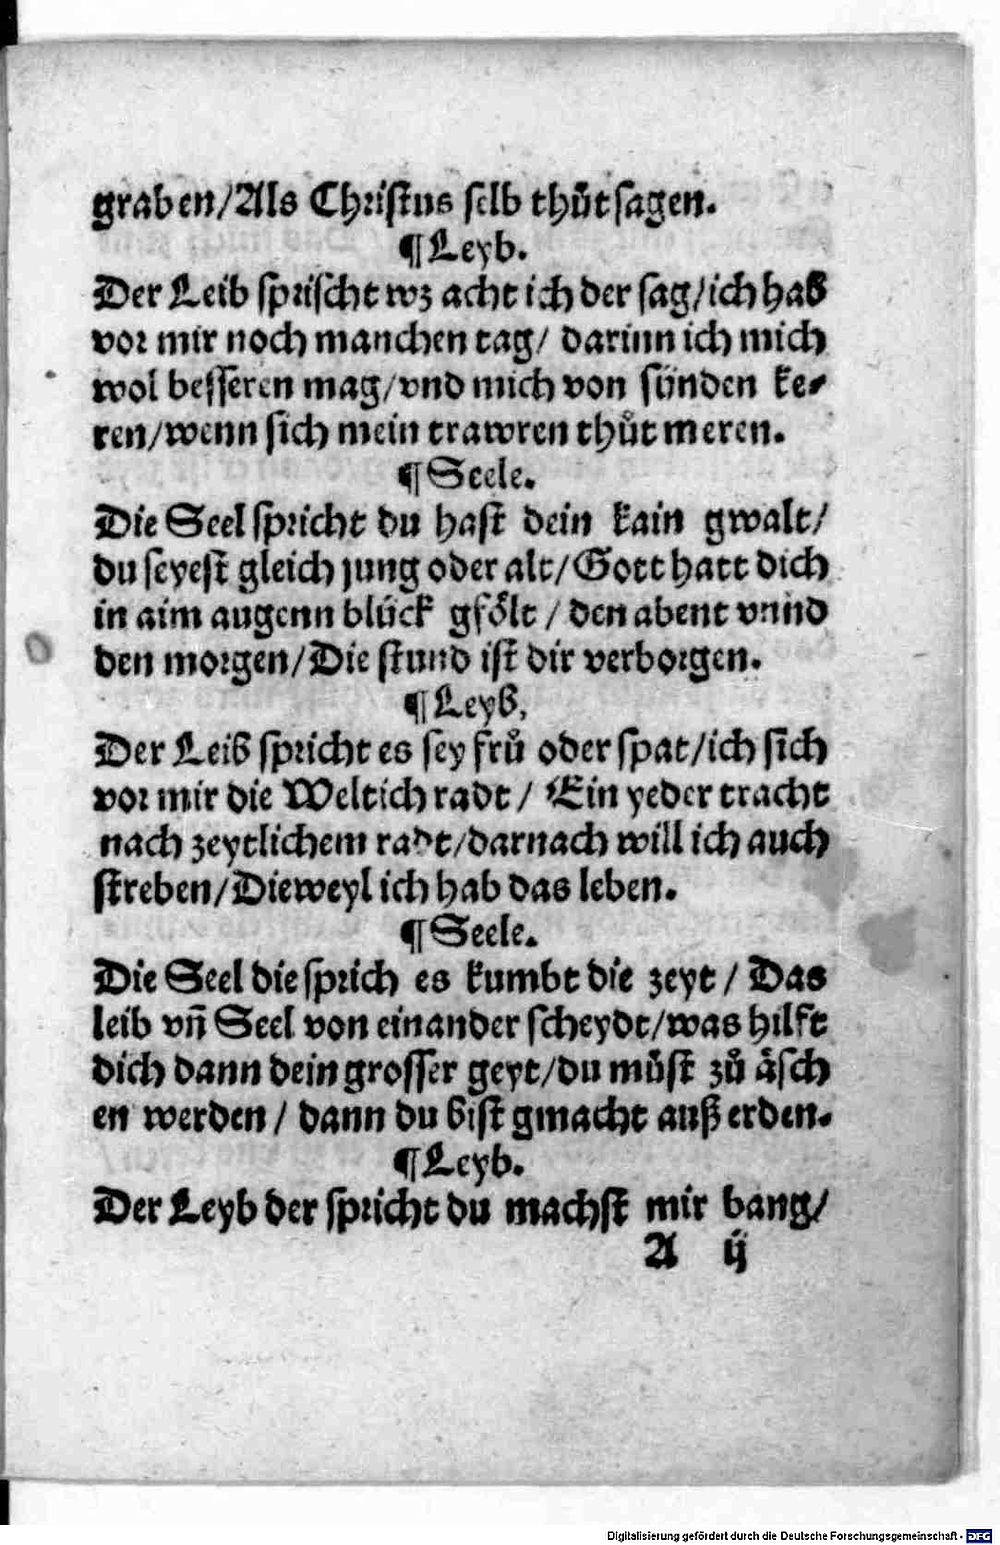 graben/Als Christus selb thůt sagen.
¶Leyb.
Der Leib sprischt wz acht ich der sag/ich hab
vor mir noch manchen tag/ darinn ich mich
wol besseren mag/vnd mich von sünden ke⸗
ren/wenn sich mein trawren thůt meren.
¶Seele.
Die Seel spricht du hast dein kain gwalt/
du seyest gleich jung oder alt/Gott hatt dich
in aim augenn blück gfölt / den abent vnnd
den morgen/Die stund ist dir verborgen.
¶Leyb.
Der Leib spricht es sey frů oder spat/ich sich
vor mir die Welt ich radt / Ein yeder tracht
nach zeytlichem radt/darnach will ich auch
streben/Dieweyl ich hab das leben.
¶Seele.
Die Seel die sprich es kumbt die zeyt / Das
leib vñ Seel von einander scheydt/was hilft
dich dann dein grosser geyt/du můst zů äsch
en werden / dann du bist gmacht auß erden.
¶Leyb.
Der Leyb der spricht du machst mir bang/
A ij
Digitalisierung gefördert durch die Deutsche Forschungsgemeinschaft - DFG